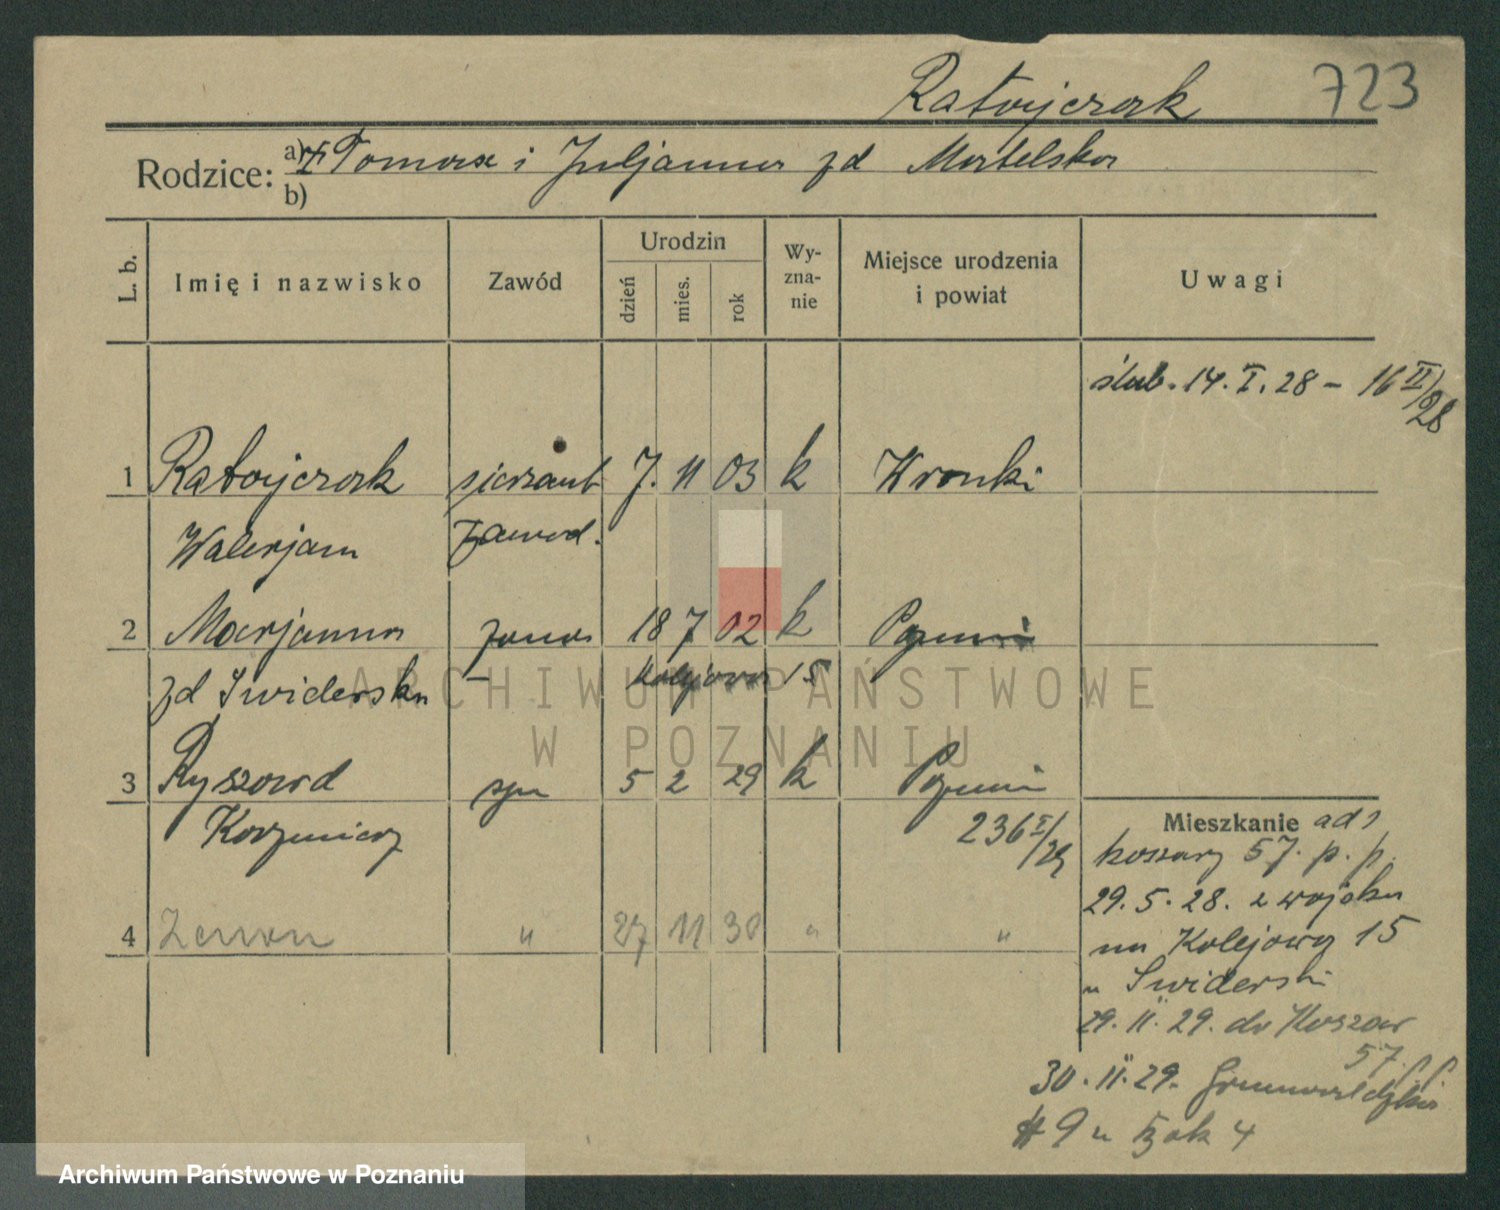 Ratajczak 723
Rodzice: a) Tomasz i Juljanna zd Martelska
b)
L. b. Imię i nazwisko Zawód Urodzin dzień mies. rok Wy-zna-nie Miejsce urodzenia i powiat Uwagi
ślub. 14. I. 28 - 16 II/28
1 Ratajczak sierżant 7. 11 03 k Wronki
Walerjan zawod.
2 Marjanna żona 18 7 02 k Poznań
zd Swiderska Kolejowa 15
ARCHIWUM PAŃSTWOWE
W POZNANIU
3 Ryszard syn 5 2 29 k Poznań
Kazimierz 236 I/29
Mieszkanie ad 1
koszary 57. p. p.
29. 5. 28. z wojska
4 Zenon " 27 11 30 " "
na Kolejowa 15
u Swiderski
29. II. 29. do Koszar
57. p p
30. II. 29. Grunwaldzka
9 u 4
Archiwum Państwowe w Poznaniu